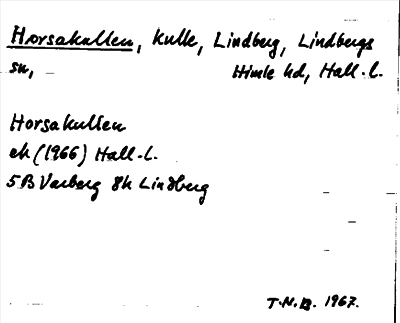 Horsakullen, kulle, Lindberg, Lindbergs
sn, Himle hd, Hall.l.
Horsakullen
ek (1966) Hall.l.
5B Varberg 8h Lindberg
T.N.B. 1967.